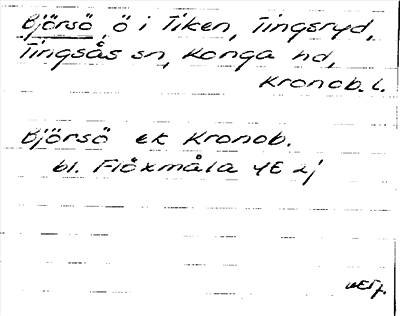 Björsö, ö i Tiken, Tingsryd,
Tingsås sn, Konga hd,
Kronob. l.
Björsö ek Kronob.
bl. Flöxmåla 4E 2j